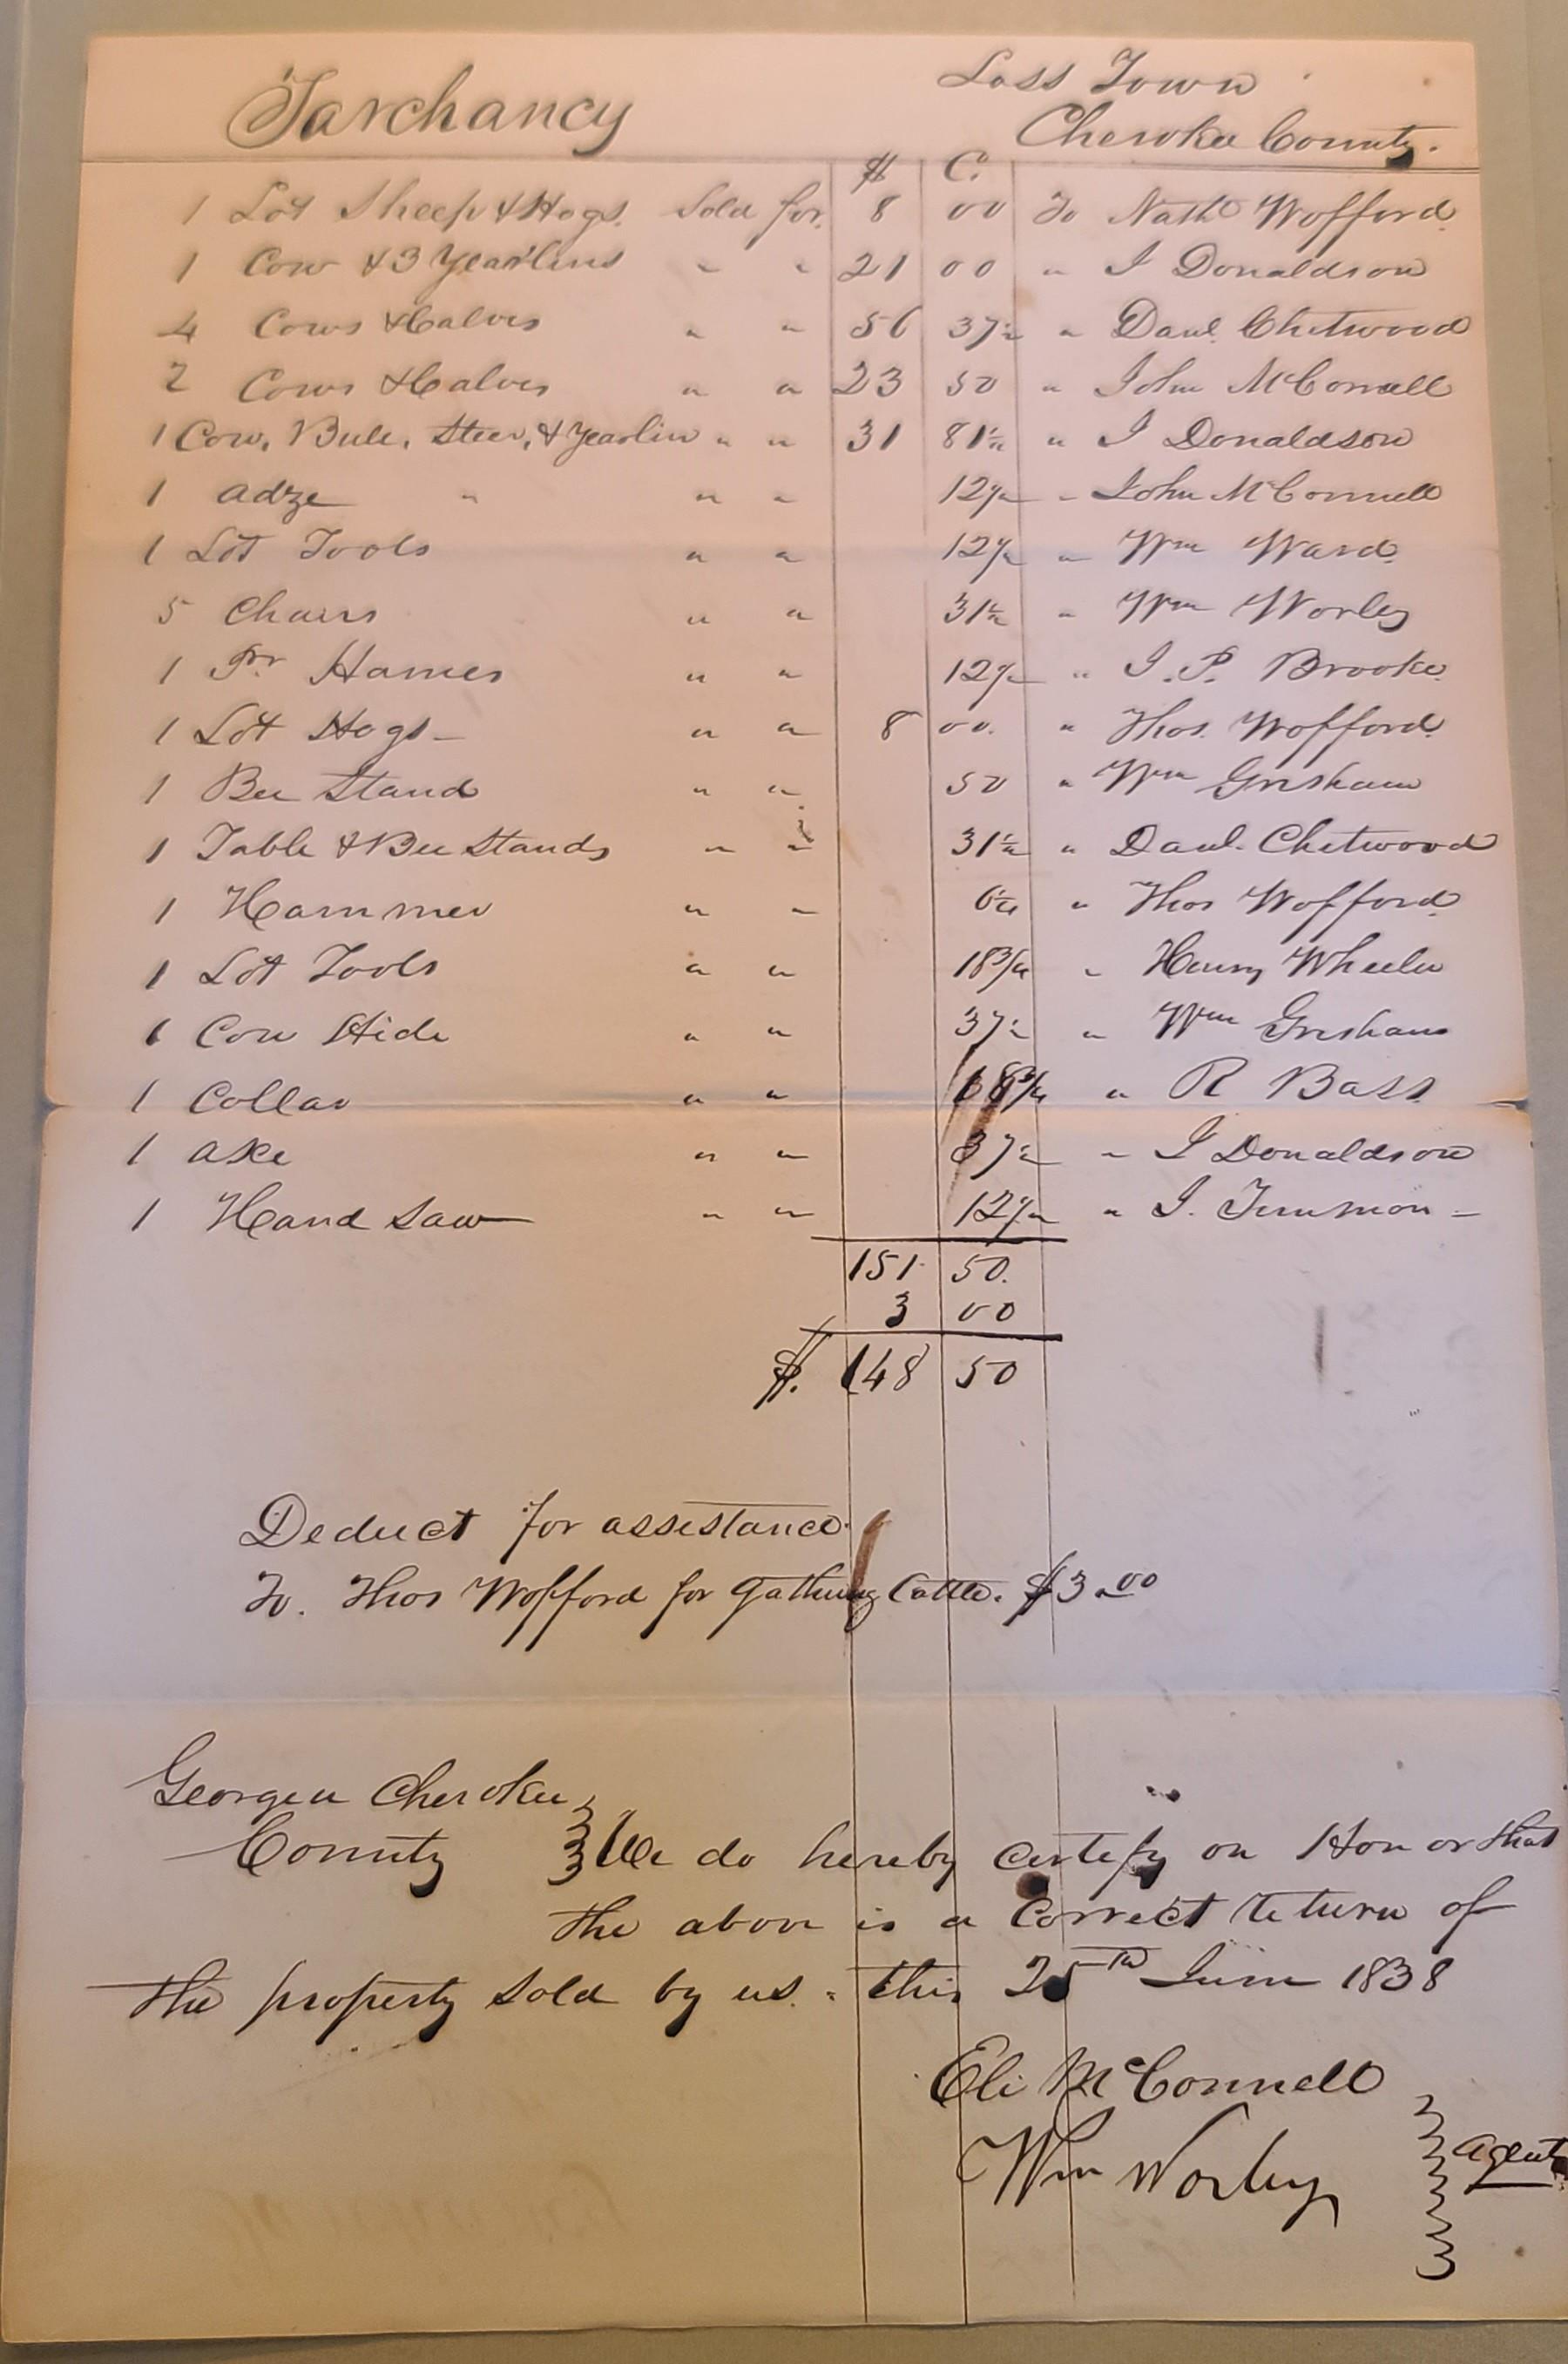 Tarchancy
Lass Town
Cherokee County.
$ C.
1 Lot Sheep & Hogs. Sold for. 8 00 To Nathl Wofford.
1 Cow & 3 Yearlins " " 21 00 " I Donaldson
4 Cows & Calves " " 56 37½ " Danl. Chitwood
2 Cows & Calves " " 23 50 " John McConnell
1 Cow, Bull, Steer, & Yearlin " " 31 81¼ " I Donaldson
1 adze " " " 12½ " John McConnell
1 Lot Tools " " 12½ " Wm Ward.
5 Chairs " " 31¼ " Wm Worley
1 Pr Hames " " 12½ " I. P. Brooke.
1 Lot Hogs - " " 8 00. " Thos. Wofford.
1 Bee Stand " " 50 " Wm Grisham
1 Table & Bee Stands " " 31¼ " Danl. Chitwood
1 Hammer " " 6¼ " Thos Wofford.
1 Lot Tools " " 18¾ " Henry Wheeler
1 Cow Hide " " 37½ " Wm Grisham
1 Collar " " 18¾ " R Bass.
1 axe " " 37½ " I Donaldson
1 Hand Saw " " 12½ " I. Timmon -
151 50.
3 00
$. 148 50
Deduct for assistance.
To. Thos Wofford for Gathering Cattle. $3.00
Georgia Cherokee
County We do hereby certefy on Honor that
the above is a Correct return of
the property sold by us. this 25th June 1838
Eli McConnell
Wm Worley
agents